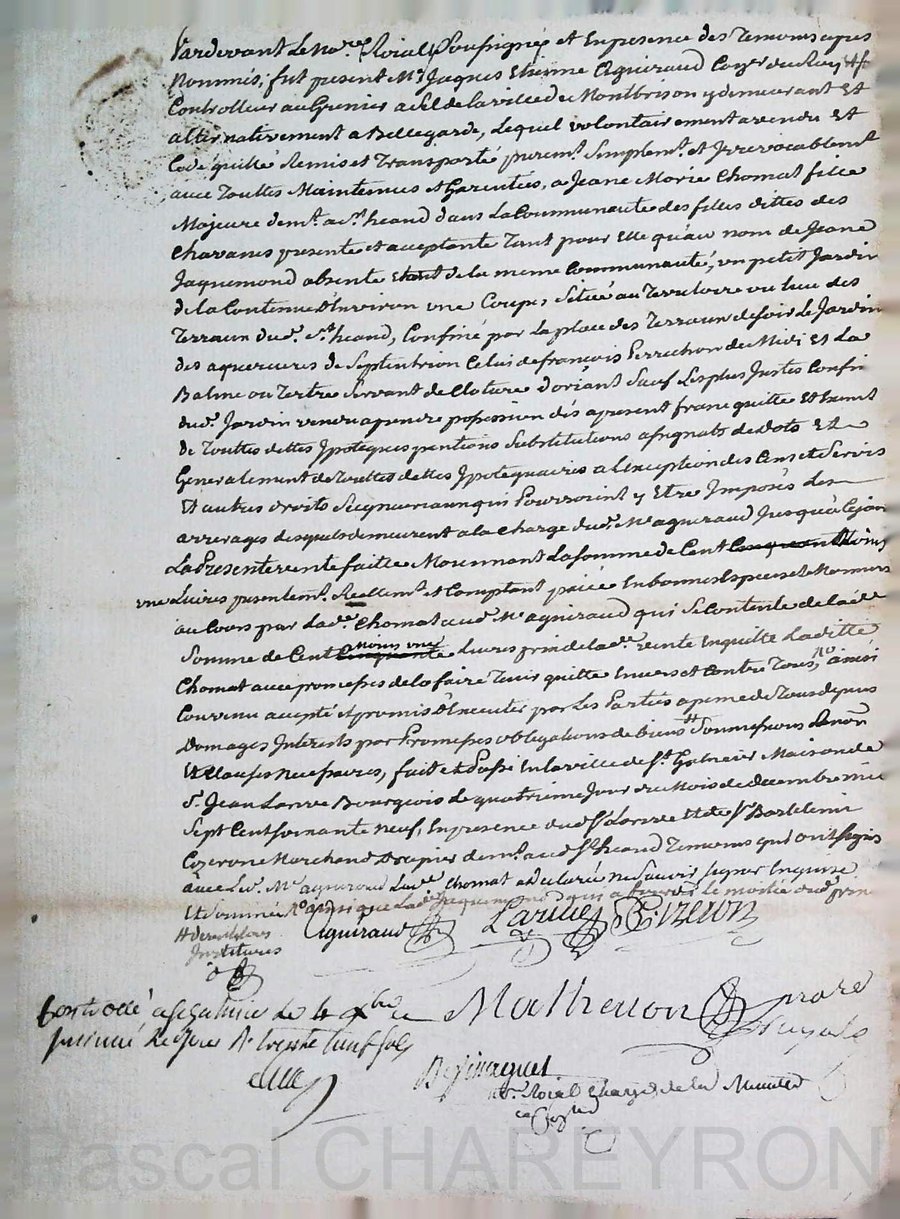 Pardevant Le No.re Roial Soussigné et En presence des Temoins apres
Nommés, fut present M.e Jaques Etienne Aguiraud Con.er du Roy
Controlleur au Grenier a Sel de la ville de Montbrison y demeurant Et
alternativement a Bellegarde, Lequel volontairement a vendu Et
Cedé quitté Remis et Transporté purem.t Simplem.t et Irrevocablem.t
avec Touttes Maintenues et Garenties, a Jeane Marie Chomat fille
Majeure dem.t a S.t heand dans La Communauté des filles dittes des
Charanes presente et acceptante Tant pour Elle qu'au nom de Jeane
Jaquemond absente de la meme Communauté, un petit Jardin
de la Contenue D'Environ une Coupe, Situé au Territoire ou lieu des
Terraux dud. S.t heand, Confiné par la place des Terraux de Soir Le Jardin
des de Septentrion Celui de françois Perruchon de Midi Et La
Balme ou Tertre Servant de Cloture d'oriant Sauf Les plus Justes Confins
dud. Jardin vendu a prendre possession dés apresent franc quitte Et Exempt
de Touttes dettes Ipoteques pentions Substitutions assignats de Dots Et
Generalement de Touttes dettes Ipotequaires a l'exception des Cens et Servis
Et autres droits Seigneuriaux qui Pourroient y Etre Imposés Les
arrerages desquels demeurent a la Charge dud. M.e aguiraud Jusqu'a Ce jour
La Presente vente faitte Moiennant La Somme de Cent moins
une Livres presentem.t Reellem.t et Comptant paiée En bonnes Especes et Monnoies
au Cours par Lad. Chomat aud. M.e aguiraud qui Se Contente de lad.
Somme de Cent moins une Livres prix de lad. vente En quitte Laditte
Chomat avec promesses de la faire Tenir quitte Envers et Contre Tous, ainsi
Convenu accepté et promis D'Executer par Les Parties a peine de Tous depens
Domages Interets par Promesses obligations de biens Soumissions Renon.
Et Clauses Necessaires, fait et Passé En la ville de S.t Galmier Maison de
S. Jean Larue Bourgeois Le quatrieme Jour du Mois de decembre mil
Sept Cent soixante neuf, En presence dud. S. Larue et de S. Bartelemi
Cizeron Marchand Drapier dem.t aud. S.t heand Temoins qui ont signé
avec Led. M.e aguiraud Lad. Chomat a declaré ne Savoir Signer Enquise
Et Sommée ainsi que Lad. Jaquemond qui a fourni Le moitié dud. prix
Aguiraud Larue B. Cizeron
Controllé a S.t Galmier Le 4 xbre Matheuon No.re
Royale
Insinué Led. Jour R. trente neuf sols
No.re Roial Chargé de la Minutte
Pascal CHAREYRON